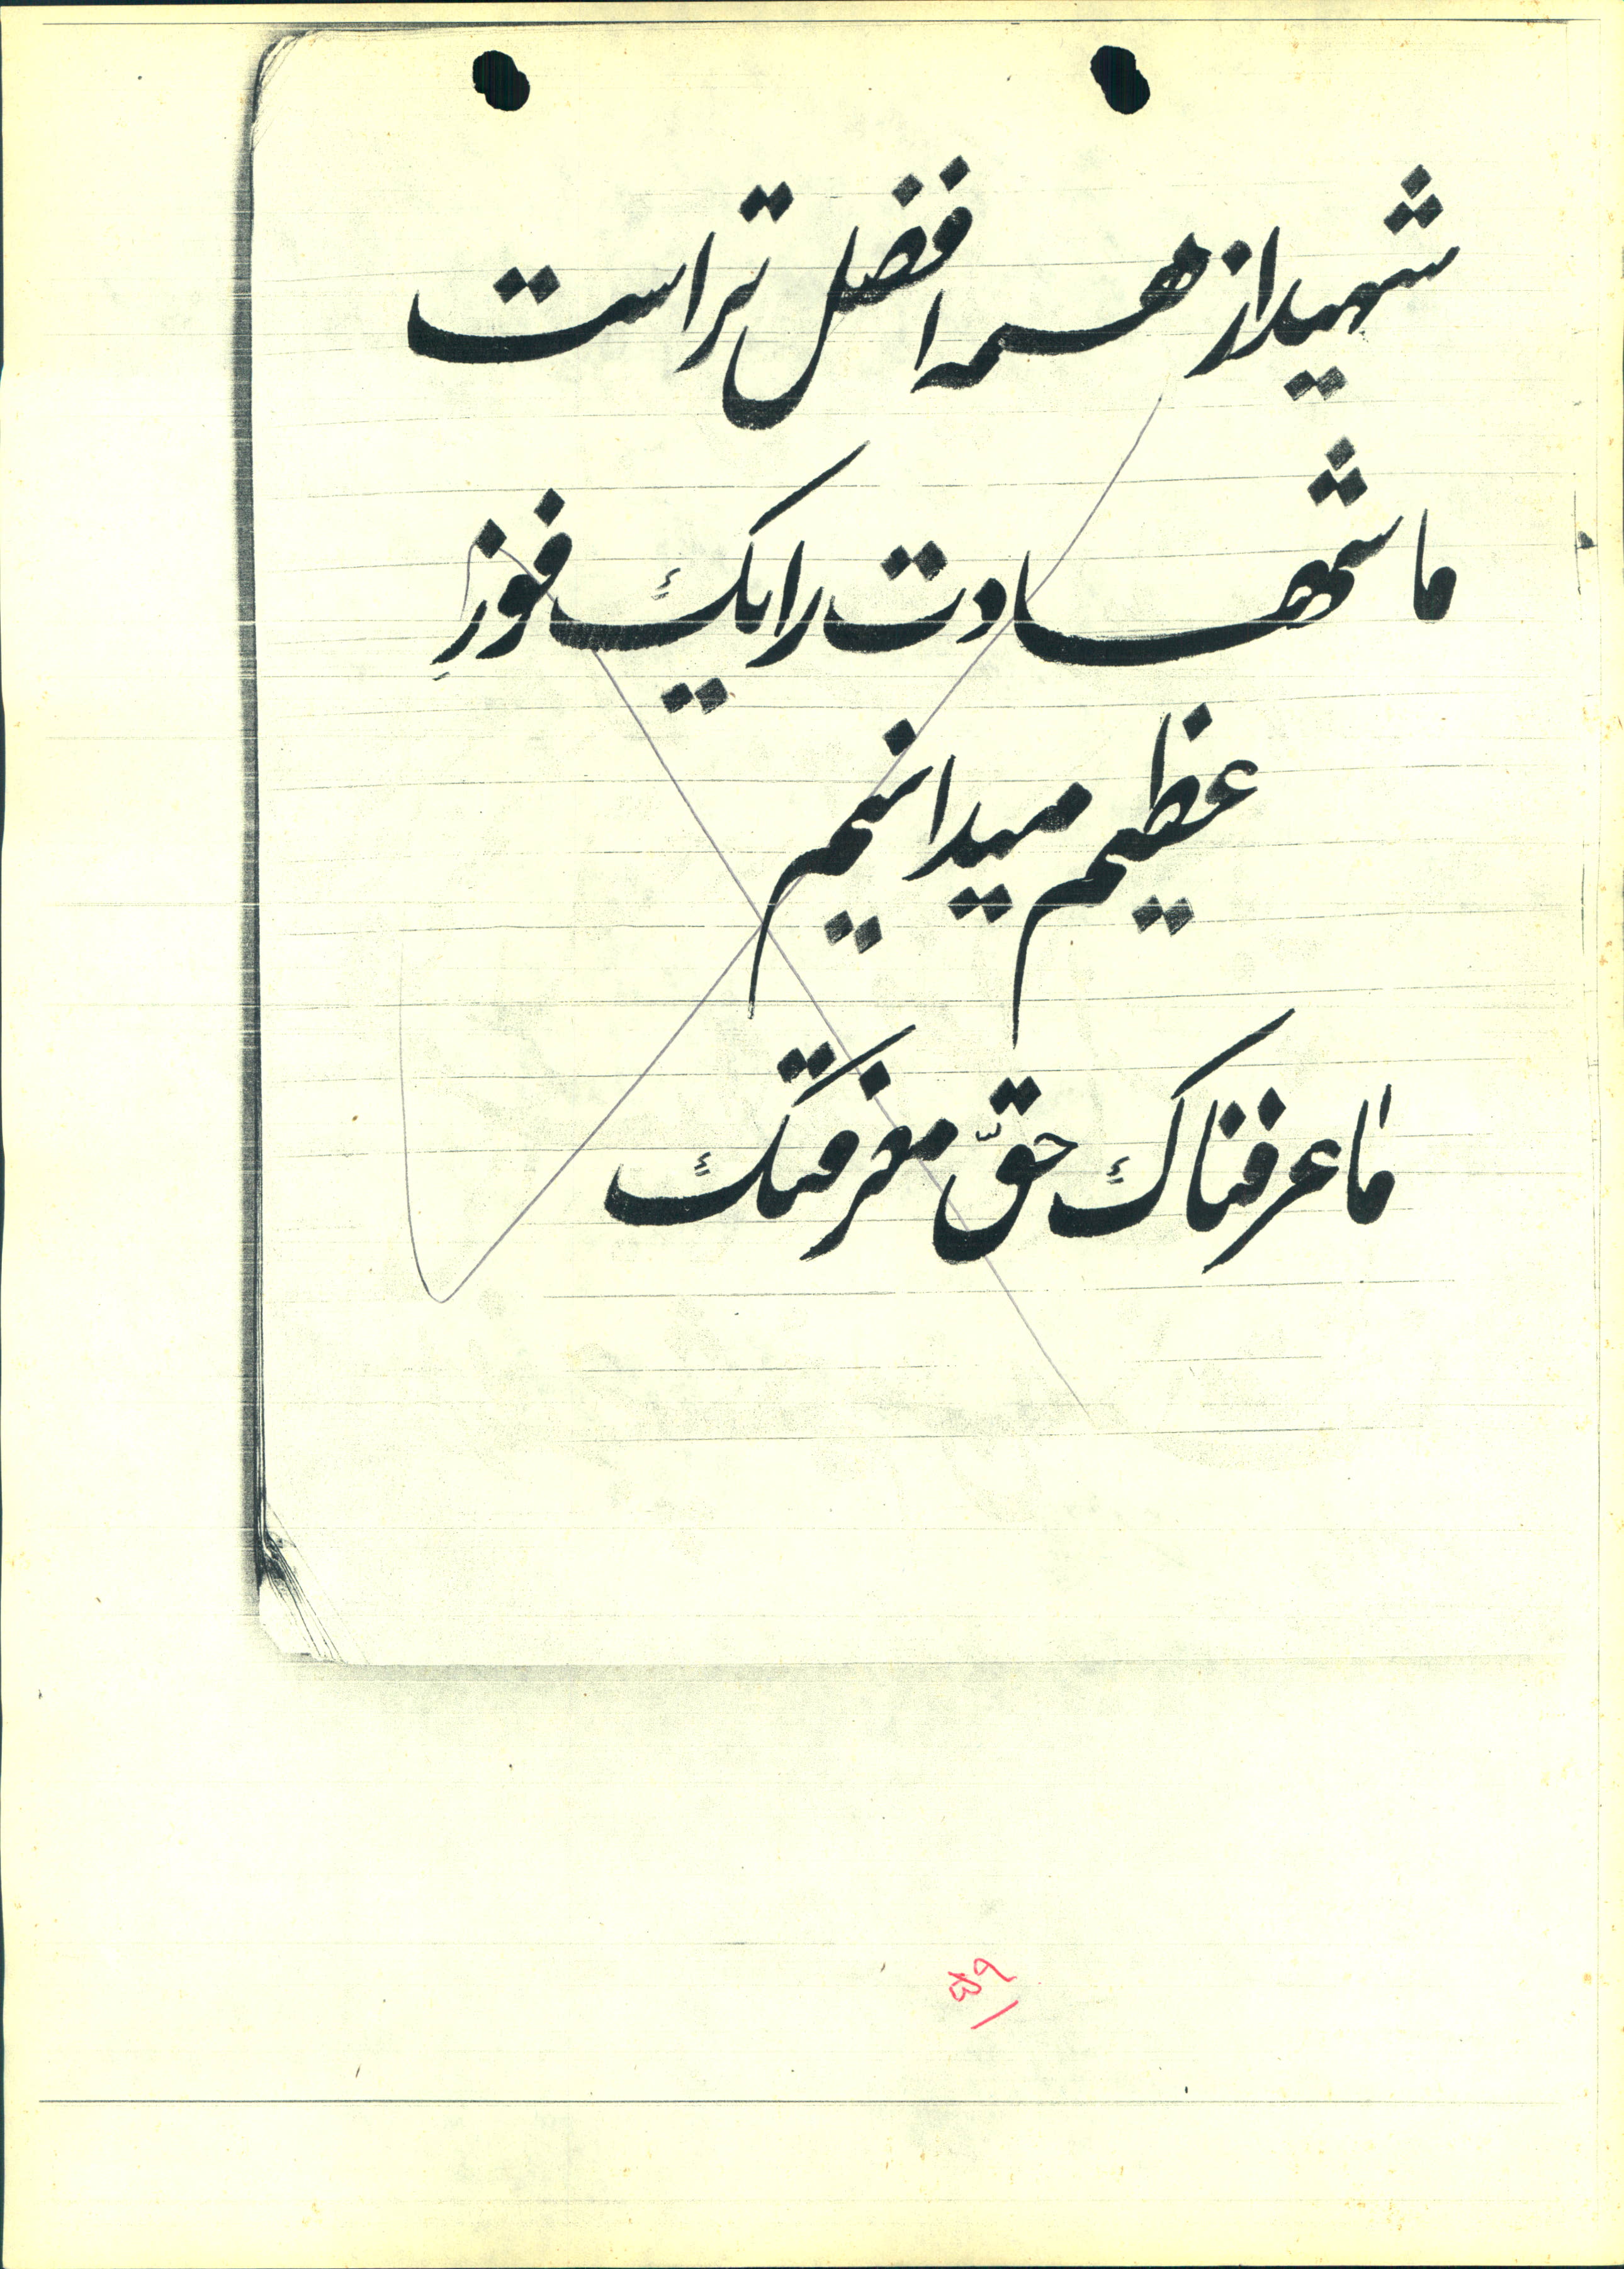 شهید از همه افضل تر است
ما شهادت را یک فوزِ
عظیم میدانیم
ما عرفناک حقّ معرفتک